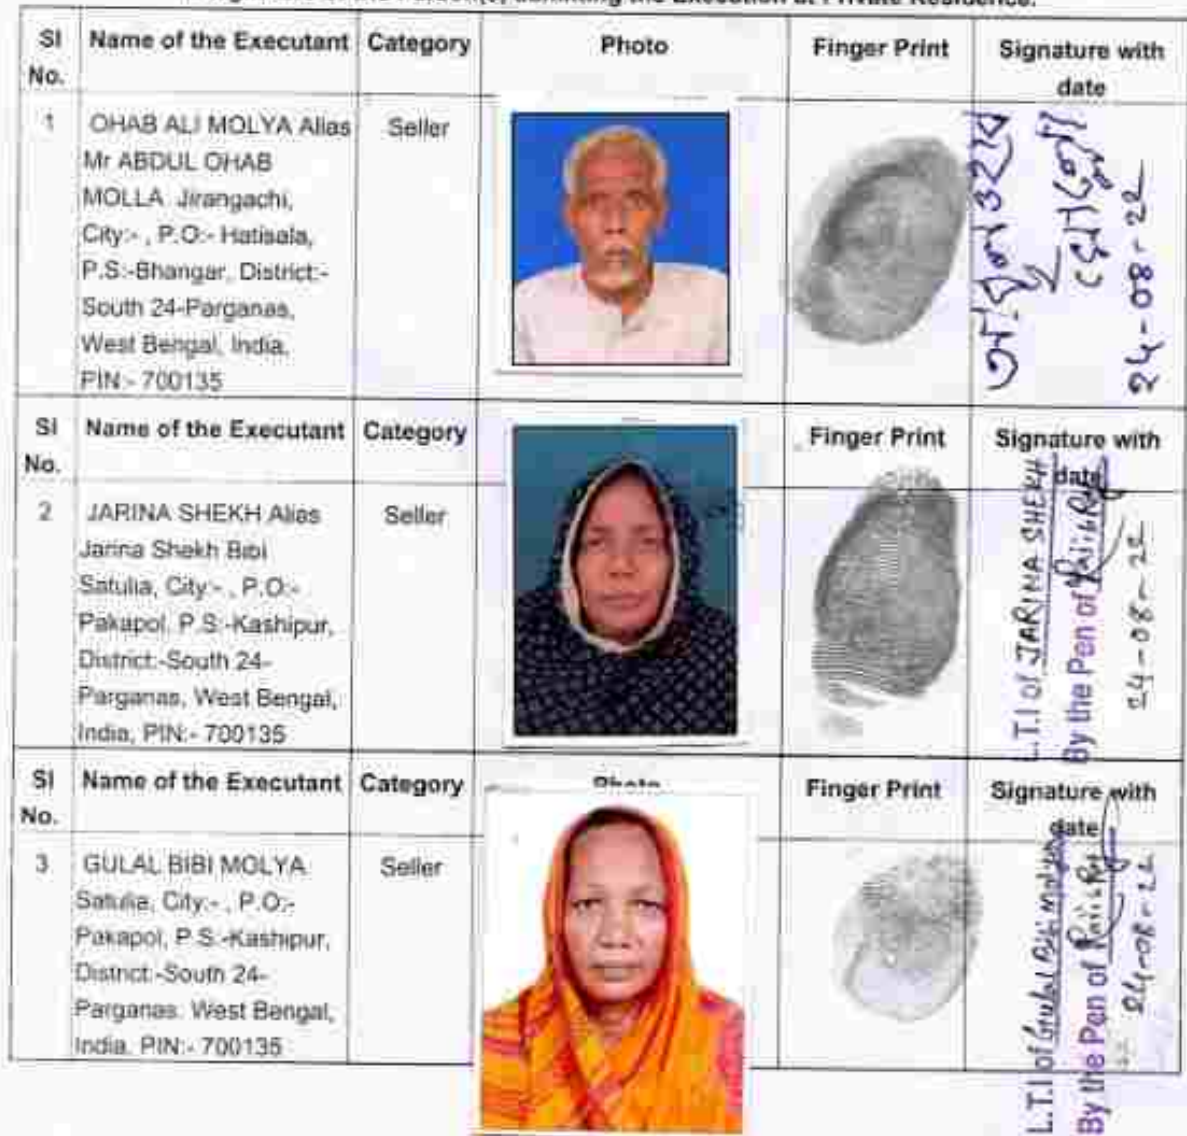 admitting the Execution at Private Residence.
Sl No. Name of the Executant Category Photo Finger Print Signature with date
1 OHAB ALI MOLYA Alias Seller
Mr ABDUL OHAB
MOLLA Jirangachi,
City:- , P.O:- Hatisala,
P.S:-Bhangar, District:-
South 24-Parganas,
West Bengal, India,
PIN:- 700135
24-08-22
Sl No. Name of the Executant Category Finger Print Signature with date
2 JARINA SHEKH Alias Seller
Jarina Shekh Bibi
Satulia, City:- , P.O:-
Pakapol, P.S:-Kashipur,
District:-South 24-
Parganas, West Bengal,
India, PIN:- 700135
L.T.I of JARINA SHEKH
By the Pen of
24-08-22
Sl No. Name of the Executant Category Photo Finger Print Signature with date
3 GULAL BIBI MOLYA Seller
Satulia, City:- , P.O:-
Pakapol, P.S:-Kashipur,
District:-South 24-
Parganas, West Bengal,
India, PIN:- 700135
L.T.I of Gulal Bibi Molya
By the Pen of
24-08-22